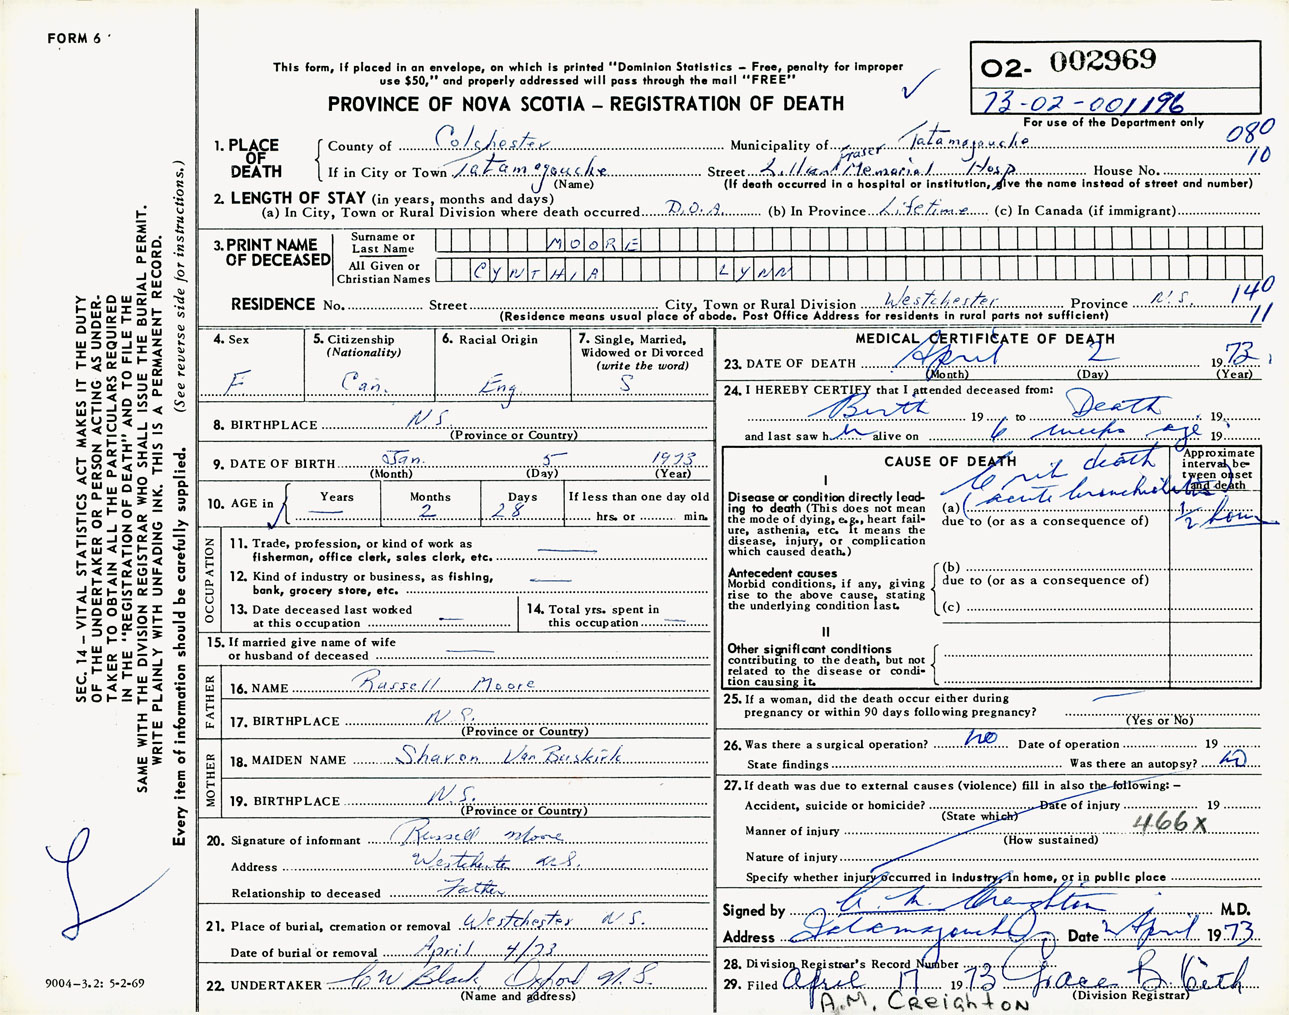 FORM 6
This form, if placed in an envelope, on which is printed "Dominion Statistics – Free, penalty for improper
use $50," and properly addressed will pass through the mail "FREE"
PROVINCE OF NOVA SCOTIA – REGISTRATION OF DEATH
02- 002969
73-02-001196
For use of the Department only
080
10
1. PLACE OF DEATH
County of Colchester Municipality of Tatamagouche
If in City or Town Tatamagouche Street Lillian Fraser Memorial Hosp House No.
(Name) (If death occurred in a hospital or institution, give the name instead of street and number)
2. LENGTH OF STAY (in years, months and days)
(a) In City, Town or Rural Division where death occurred D.O.A. (b) In Province Lifetime (c) In Canada (if immigrant)
3. PRINT NAME OF DECEASED
Surname or Last Name MOORE
All Given or Christian Names CYNTHIA LYNN
140
11
RESIDENCE No. Street City, Town or Rural Division Westchester Province N.S.
(Residence means usual place of abode. Post Office Address for residents in rural parts not sufficient)
4. Sex F
5. Citizenship (Nationality) Can.
6. Racial Origin Eng.
7. Single, Married, Widowed or Divorced (write the word) S
8. BIRTHPLACE N.S.
(Province or Country)
9. DATE OF BIRTH Jan. 5 1973
(Month) (Day) (Year)
10. AGE in Years — Months 2 Days 28 If less than one day old hrs. or min.
OCCUPATION
11. Trade, profession, or kind of work as
fisherman, office clerk, sales clerk, etc. —
12. Kind of industry or business, as fishing,
bank, grocery store, etc. —
13. Date deceased last worked
at this occupation —
14. Total yrs. spent in
this occupation —
15. If married give name of wife
or husband of deceased —
FATHER
16. NAME Russell Moore
17. BIRTHPLACE N.S.
(Province or Country)
MOTHER
18. MAIDEN NAME Sharon Van Buskirk
19. BIRTHPLACE N.S.
(Province or Country)
20. Signature of informant Russell Moore
Address Westchester N.S.
Relationship to deceased Father
21. Place of burial, cremation or removal Westchester N.S.
Date of burial or removal April 4/73
22. UNDERTAKER C W Black Oxford N.S.
(Name and address)
MEDICAL CERTIFICATE OF DEATH
23. DATE OF DEATH April 2 1973
(Month) (Day) (Year)
24. I HEREBY CERTIFY that I attended deceased from:
Birth 19 to Death 19
and last saw her alive on 6 weeks ago 19
CAUSE OF DEATH
Approximate interval between onset and death
I
Disease or condition directly leading to death (This does not
mean the mode of dying, e.g., heart failure, asthenia, etc. It means the
disease, injury, or complication
which caused death.)
Crib death
(a) (acute bronchiolitis) 1/2 hour
due to (or as a consequence of)
Antecedent causes
Morbid conditions, if any, giving
rise to the above cause, stating
the underlying condition last.
(b)
due to (or as a consequence of)
(c)
II
Other significant conditions
contributing to the death, but not
related to the disease or condition causing it.
25. If a woman, did the death occur either during
pregnancy or within 90 days following pregnancy? —
(Yes or No)
26. Was there a surgical operation? no Date of operation 19
State findings Was there an autopsy? no
27. If death was due to external causes (violence) fill in also the following: –
Accident, suicide or homicide? Date of injury 19
(State which)
Manner of injury 466X
(How sustained)
Nature of injury
Specify whether injury occurred in Industry, in home, or in public place
Signed by A. M. Creighton M.D.
Address Tatamagouche Date 2 April 1973
28. Division Registrar's Record Number
29. Filed April 17 1973 Grace B.
(Division Registrar)
A.M. CREIGHTON
SEC. 14 – VITAL STATISTICS ACT MAKES IT THE DUTY
OF THE UNDERTAKER OR PERSON ACTING AS UNDER-
TAKER TO OBTAIN ALL THE PARTICULARS REQUIRED
IN THE "REGISTRATION OF DEATH" AND TO FILE THE
SAME WITH THE DIVISION REGISTRAR WHO SHALL ISSUE THE BURIAL PERMIT.
WRITE PLAINLY WITH UNFADING INK. THIS IS A PERMANENT RECORD.
Every item of information should be carefully supplied. (See reverse side for instructions.)
9004-3.2: 5-2-69